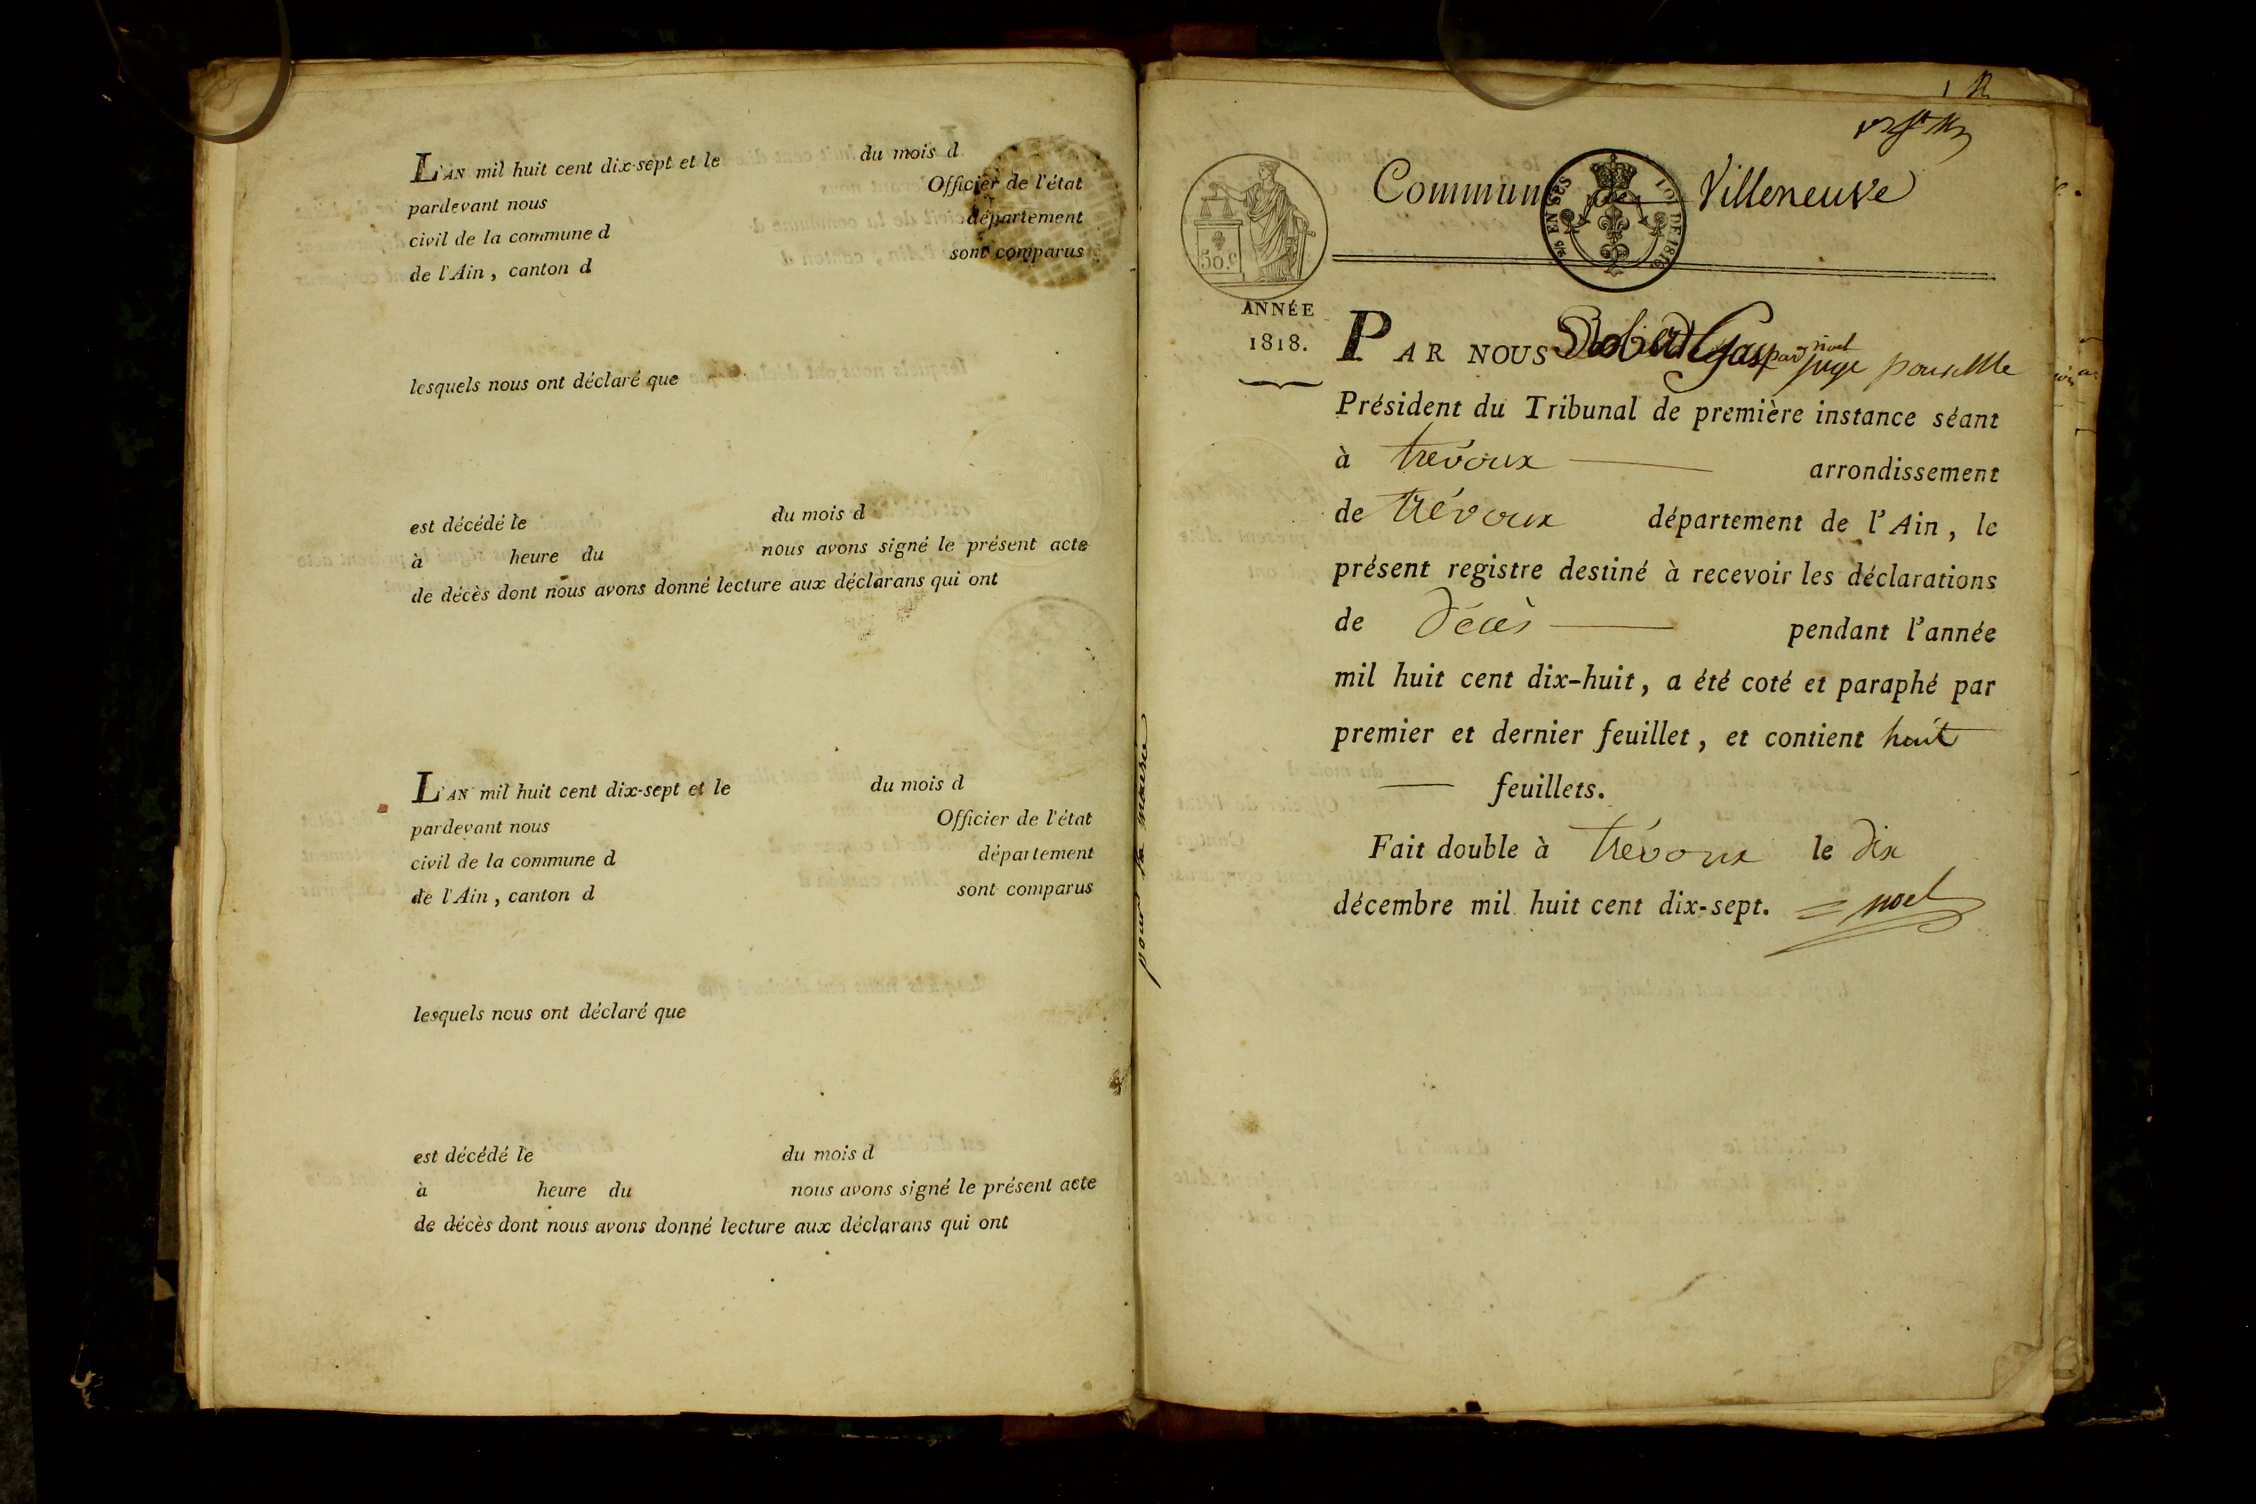 L'AN mil huit cent dix-sept et le du mois d
pardevant nous Officier de l'état
civil de la commune d département
de l'Ain , canton d sont comparus
lesquels nous ont déclaré que
est décédé le du mois d
à heure du nous avons signé le présent acte
de décès dont nous avons donné lecture aux déclarans qui ont
L'AN mil huit cent dix-sept et le du mois d
pardevant nous Officier de l'état
civil de la commune d département
de l'Ain , canton d sont comparus
lesquels nous ont déclaré que
est décédé le du mois d
à heure du nous avons signé le présent acte
de décès dont nous avons donné lecture aux déclarans qui ont
pour la mairie
1
Commune de Villeneuve
50.c
EN SUS
LOI DE 1816
ANNÉE
1818.
PAR NOUS noel juge pour le
Président du Tribunal de première instance séant
à trévoux arrondissement
de trévoux département de l'Ain, le
présent registre destiné à recevoir les déclarations
de Décès pendant l'année
mil huit cent dix-huit, a été coté et paraphé par
premier et dernier feuillet, et contient huit
feuillets.
Fait double à trévoux le dix
décembre mil huit cent dix-sept. noel